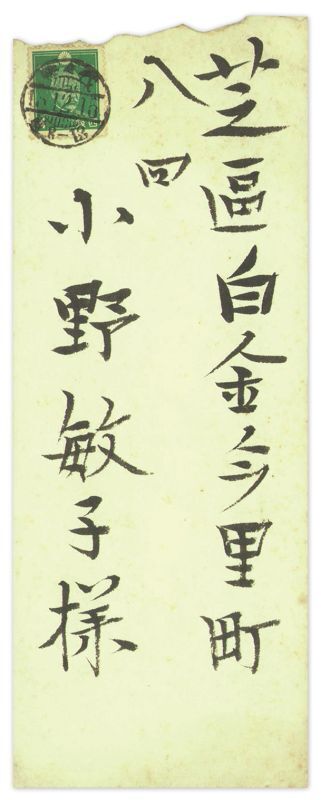 芝區白金今里町
八四
小野敏子様